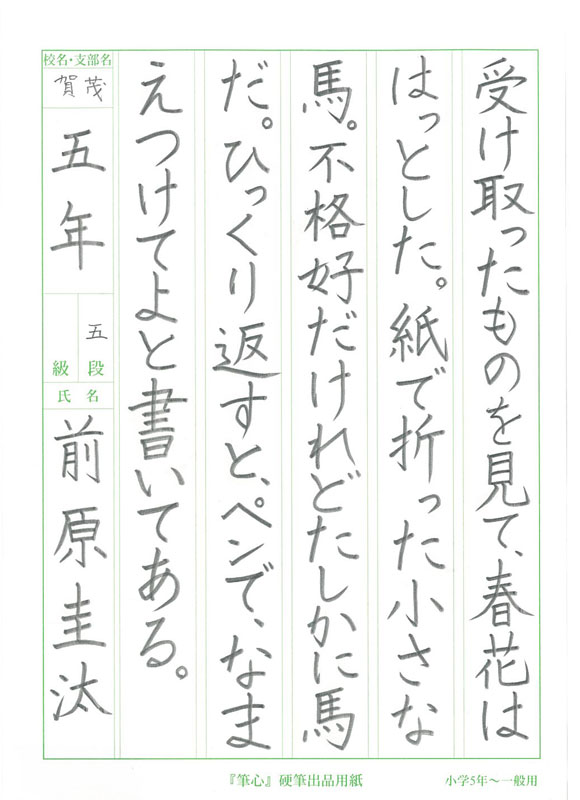 受け取ったものを見て、春花は
はっとした。紙で折った小さな
馬。不格好だけれどたしかに馬
だ。ひっくり返すと、ペンで、なま
えつけてよと書いてある。
校名・支部名
賀茂
五年
五
級 段
氏 名
前原圭汰
『筆心』硬筆出品用紙
小学5年～一般用